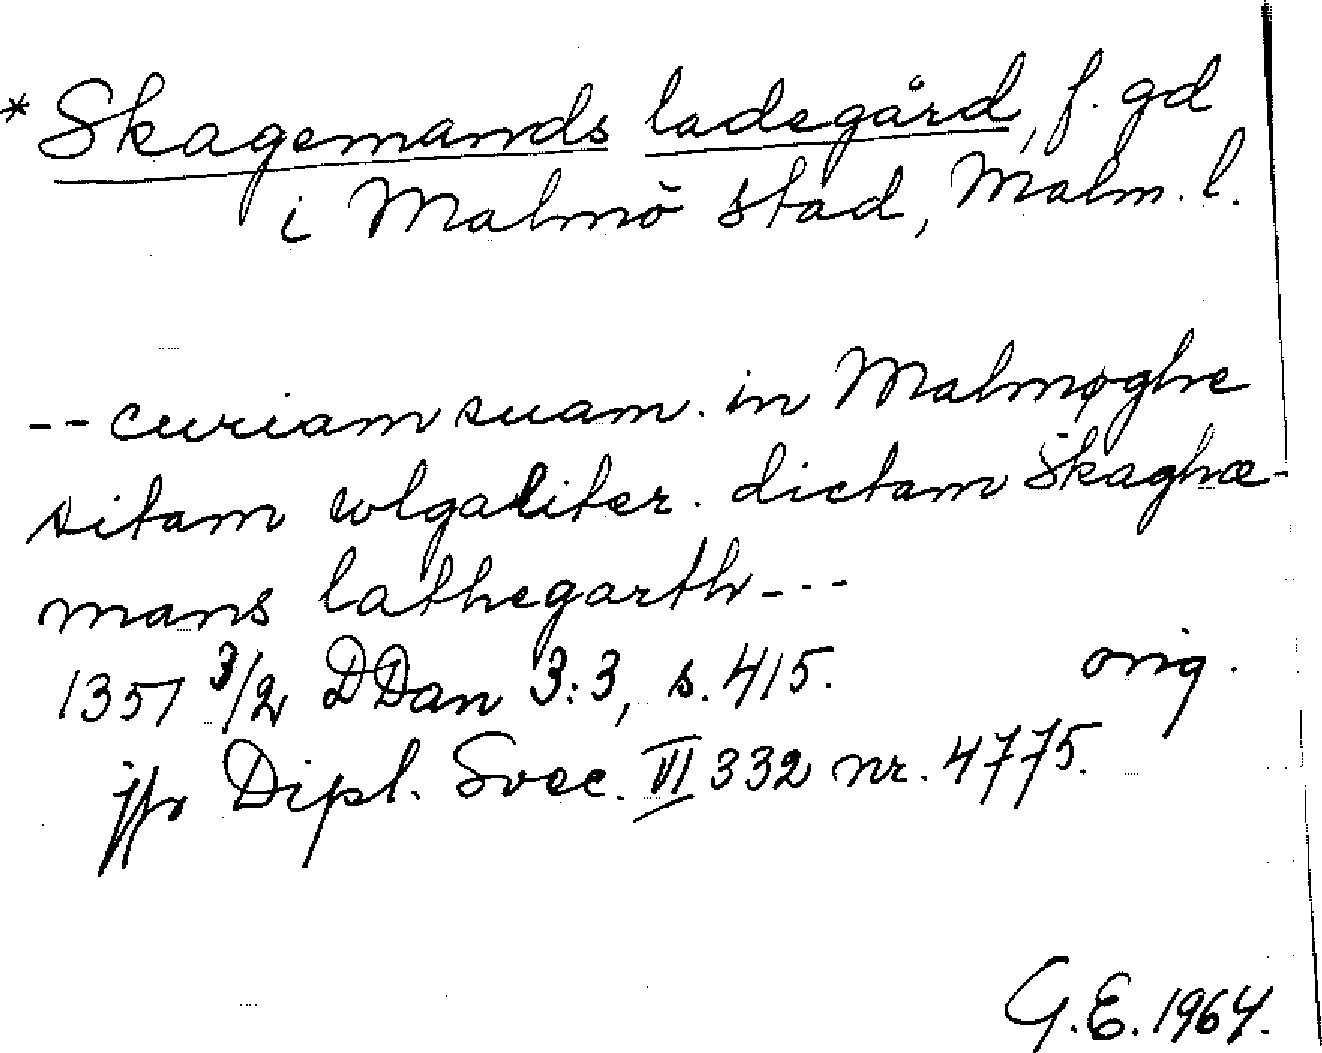 * Skagemands ladegård, f. gd
i Malmö stad, Malm. l.
-- curiam suam. in Malmøghe
sitam wlgaliter. dictam Skaghæ-
mans lathegarth---
1351 3/2 DDan 3:3, s. 415. orig.
jfr Dipl. Svec. VI 332 nr. 4775.
G.E. 1964.